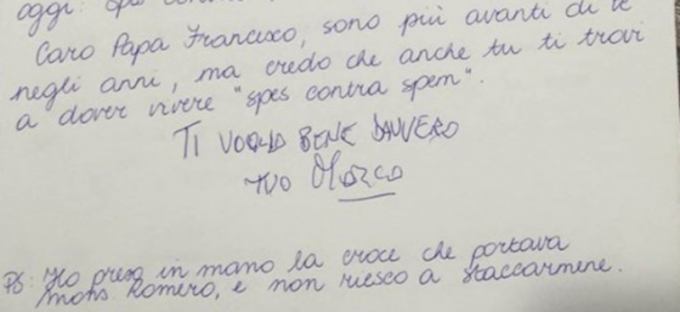 oggi:
Caro Papa Francesco, sono più avanti di te
negli anni, ma credo che anche tu ti trovi
a dover vivere "spes contra spem".
TI VOGLIO BENE DAVVERO
TUO MARCO
PS: Ho preso in mano la croce che portava
mons. Romero, e non riesco a staccarmene.